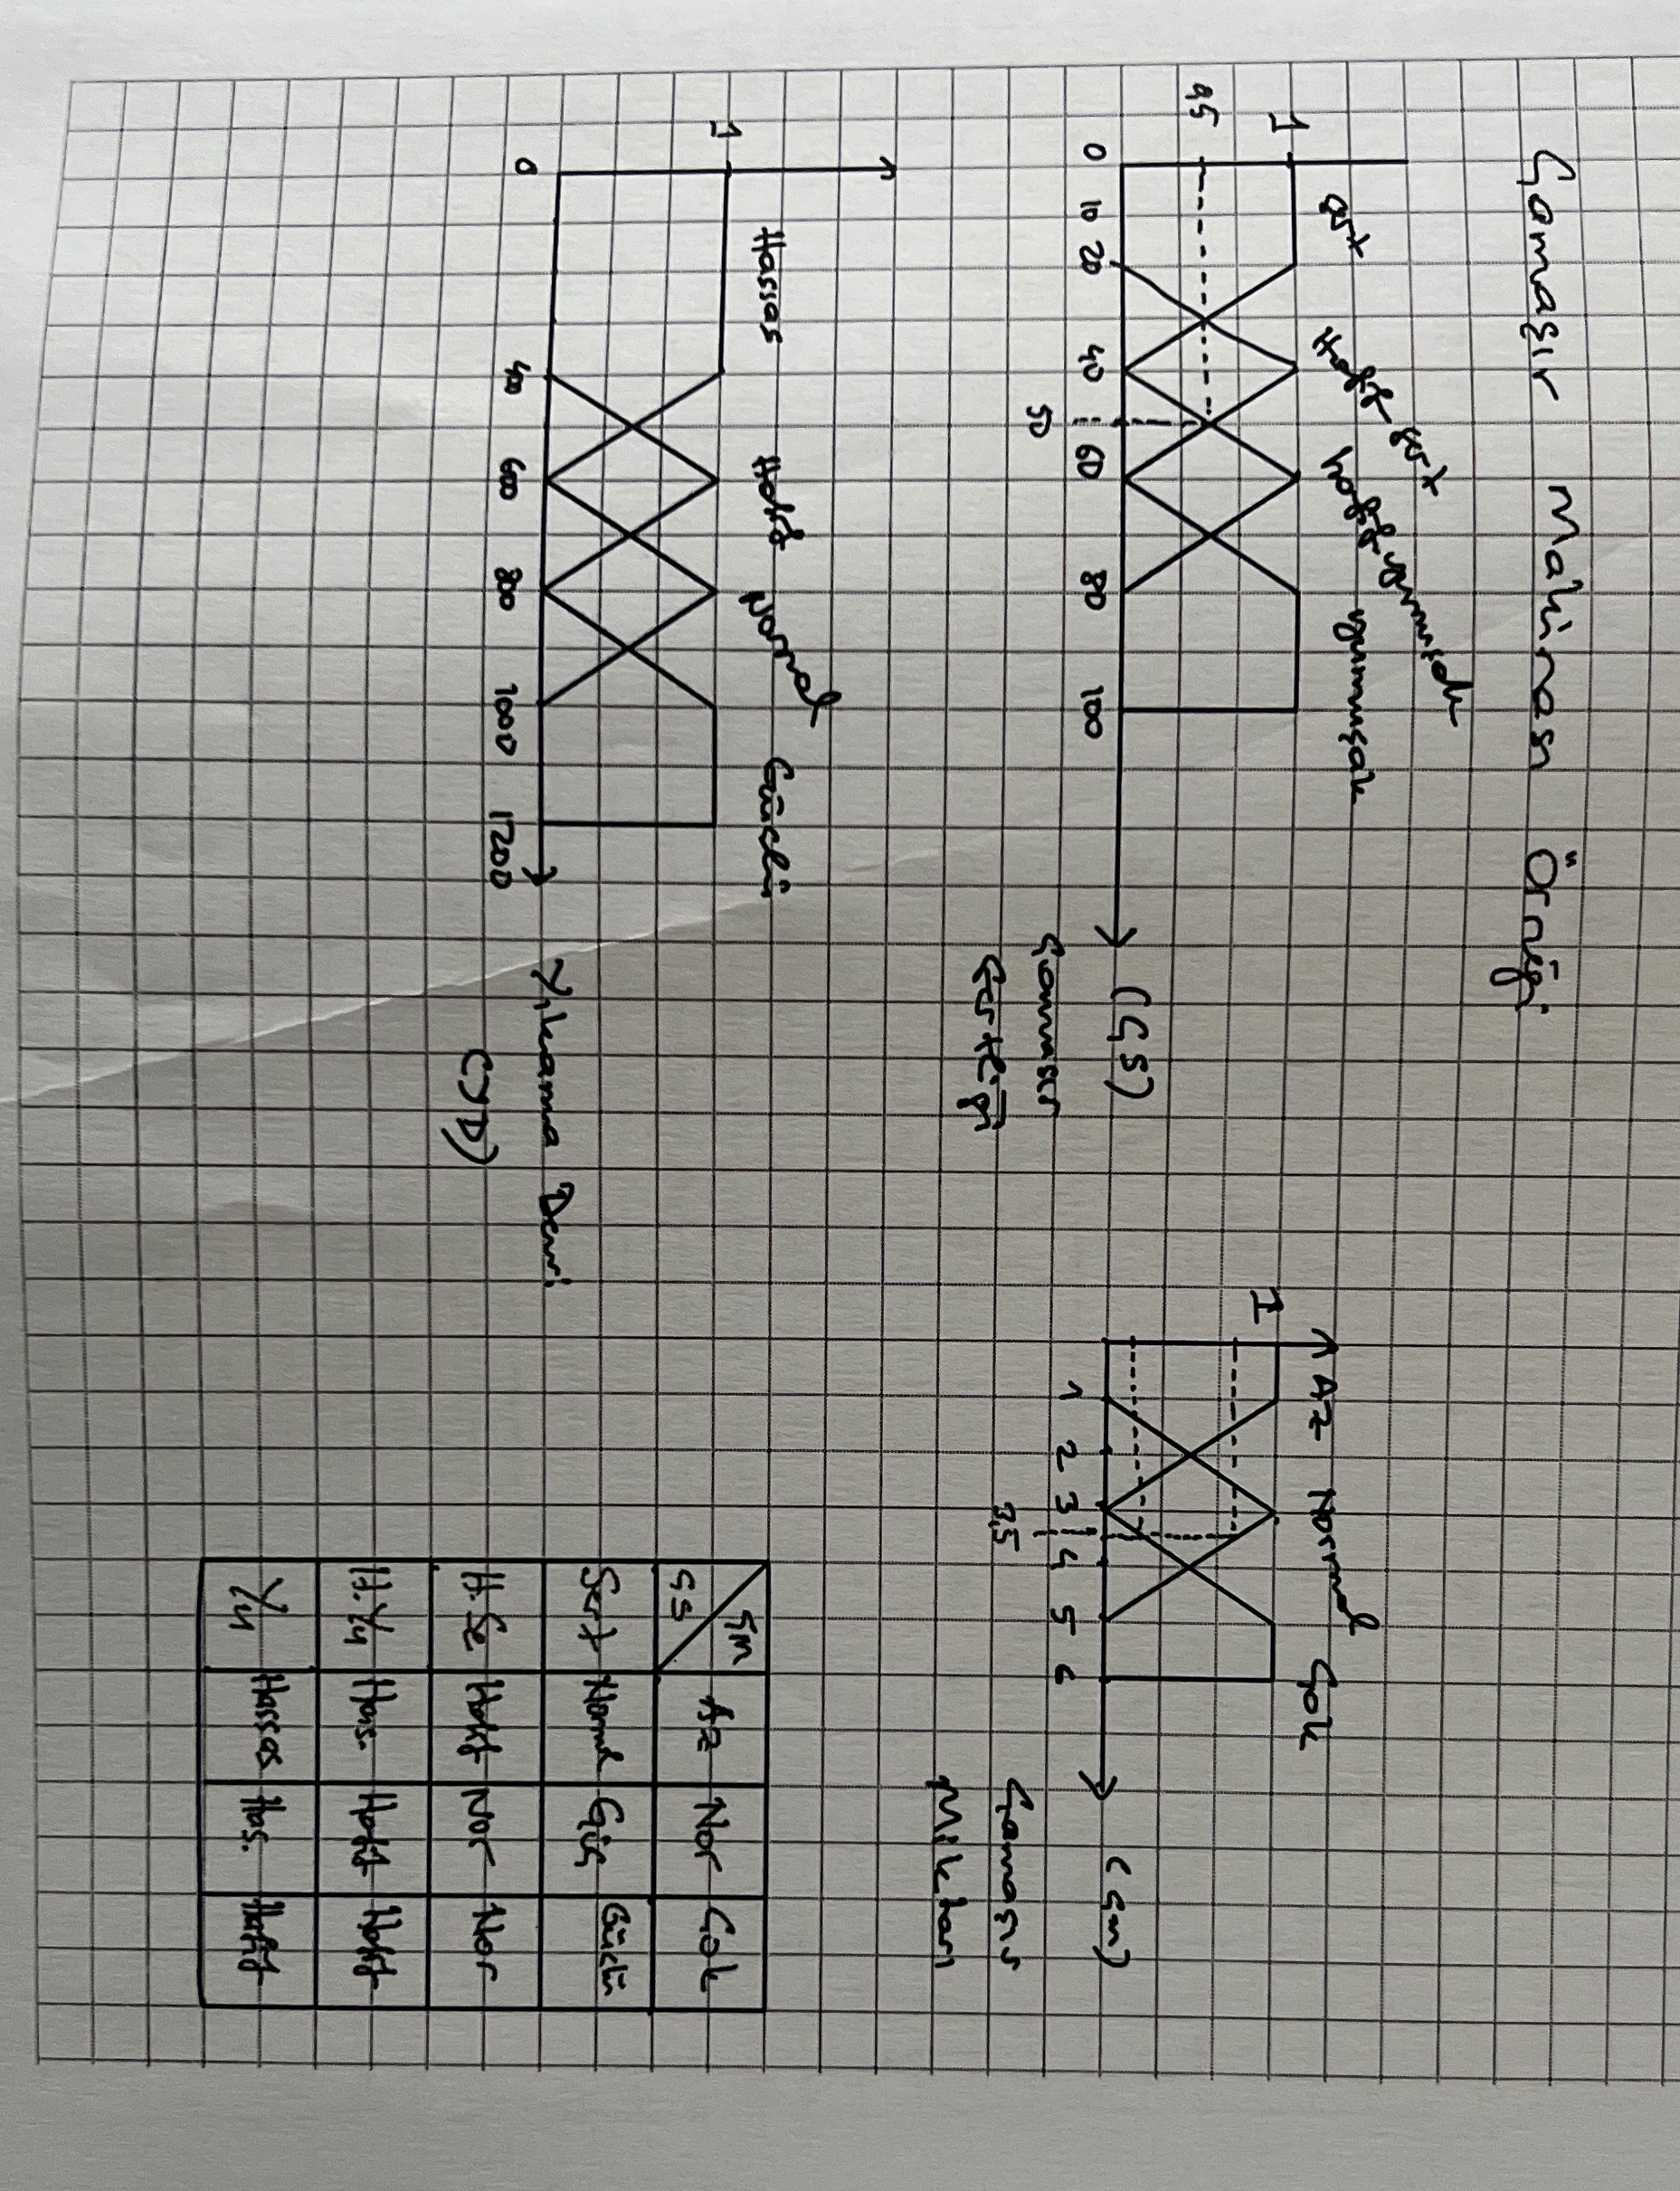 Çamaşır Makinası Örneği
1
0,5
0 10 20 40 50 60 80 100
Hafif sert
Hafif yumuşak
yumuşak
(ÇS)
Çamaşır
Sertliği
1
Az Normal Çok
1 2 3 3,5 4 5 6
(ÇM)
Çamaşır
Miktarı
1
Hassas Hafif Normal Güçlü
0 400 600 800 1000 1200
Yıkama Devri
(YD)
ÇS ÇM Az Nor Çok
Sert Normal Güç Güçlü
H.Se Hafif Nor Nor
H.Yu Has. Hafif Hafif
Yu Hassas Has. Hafif